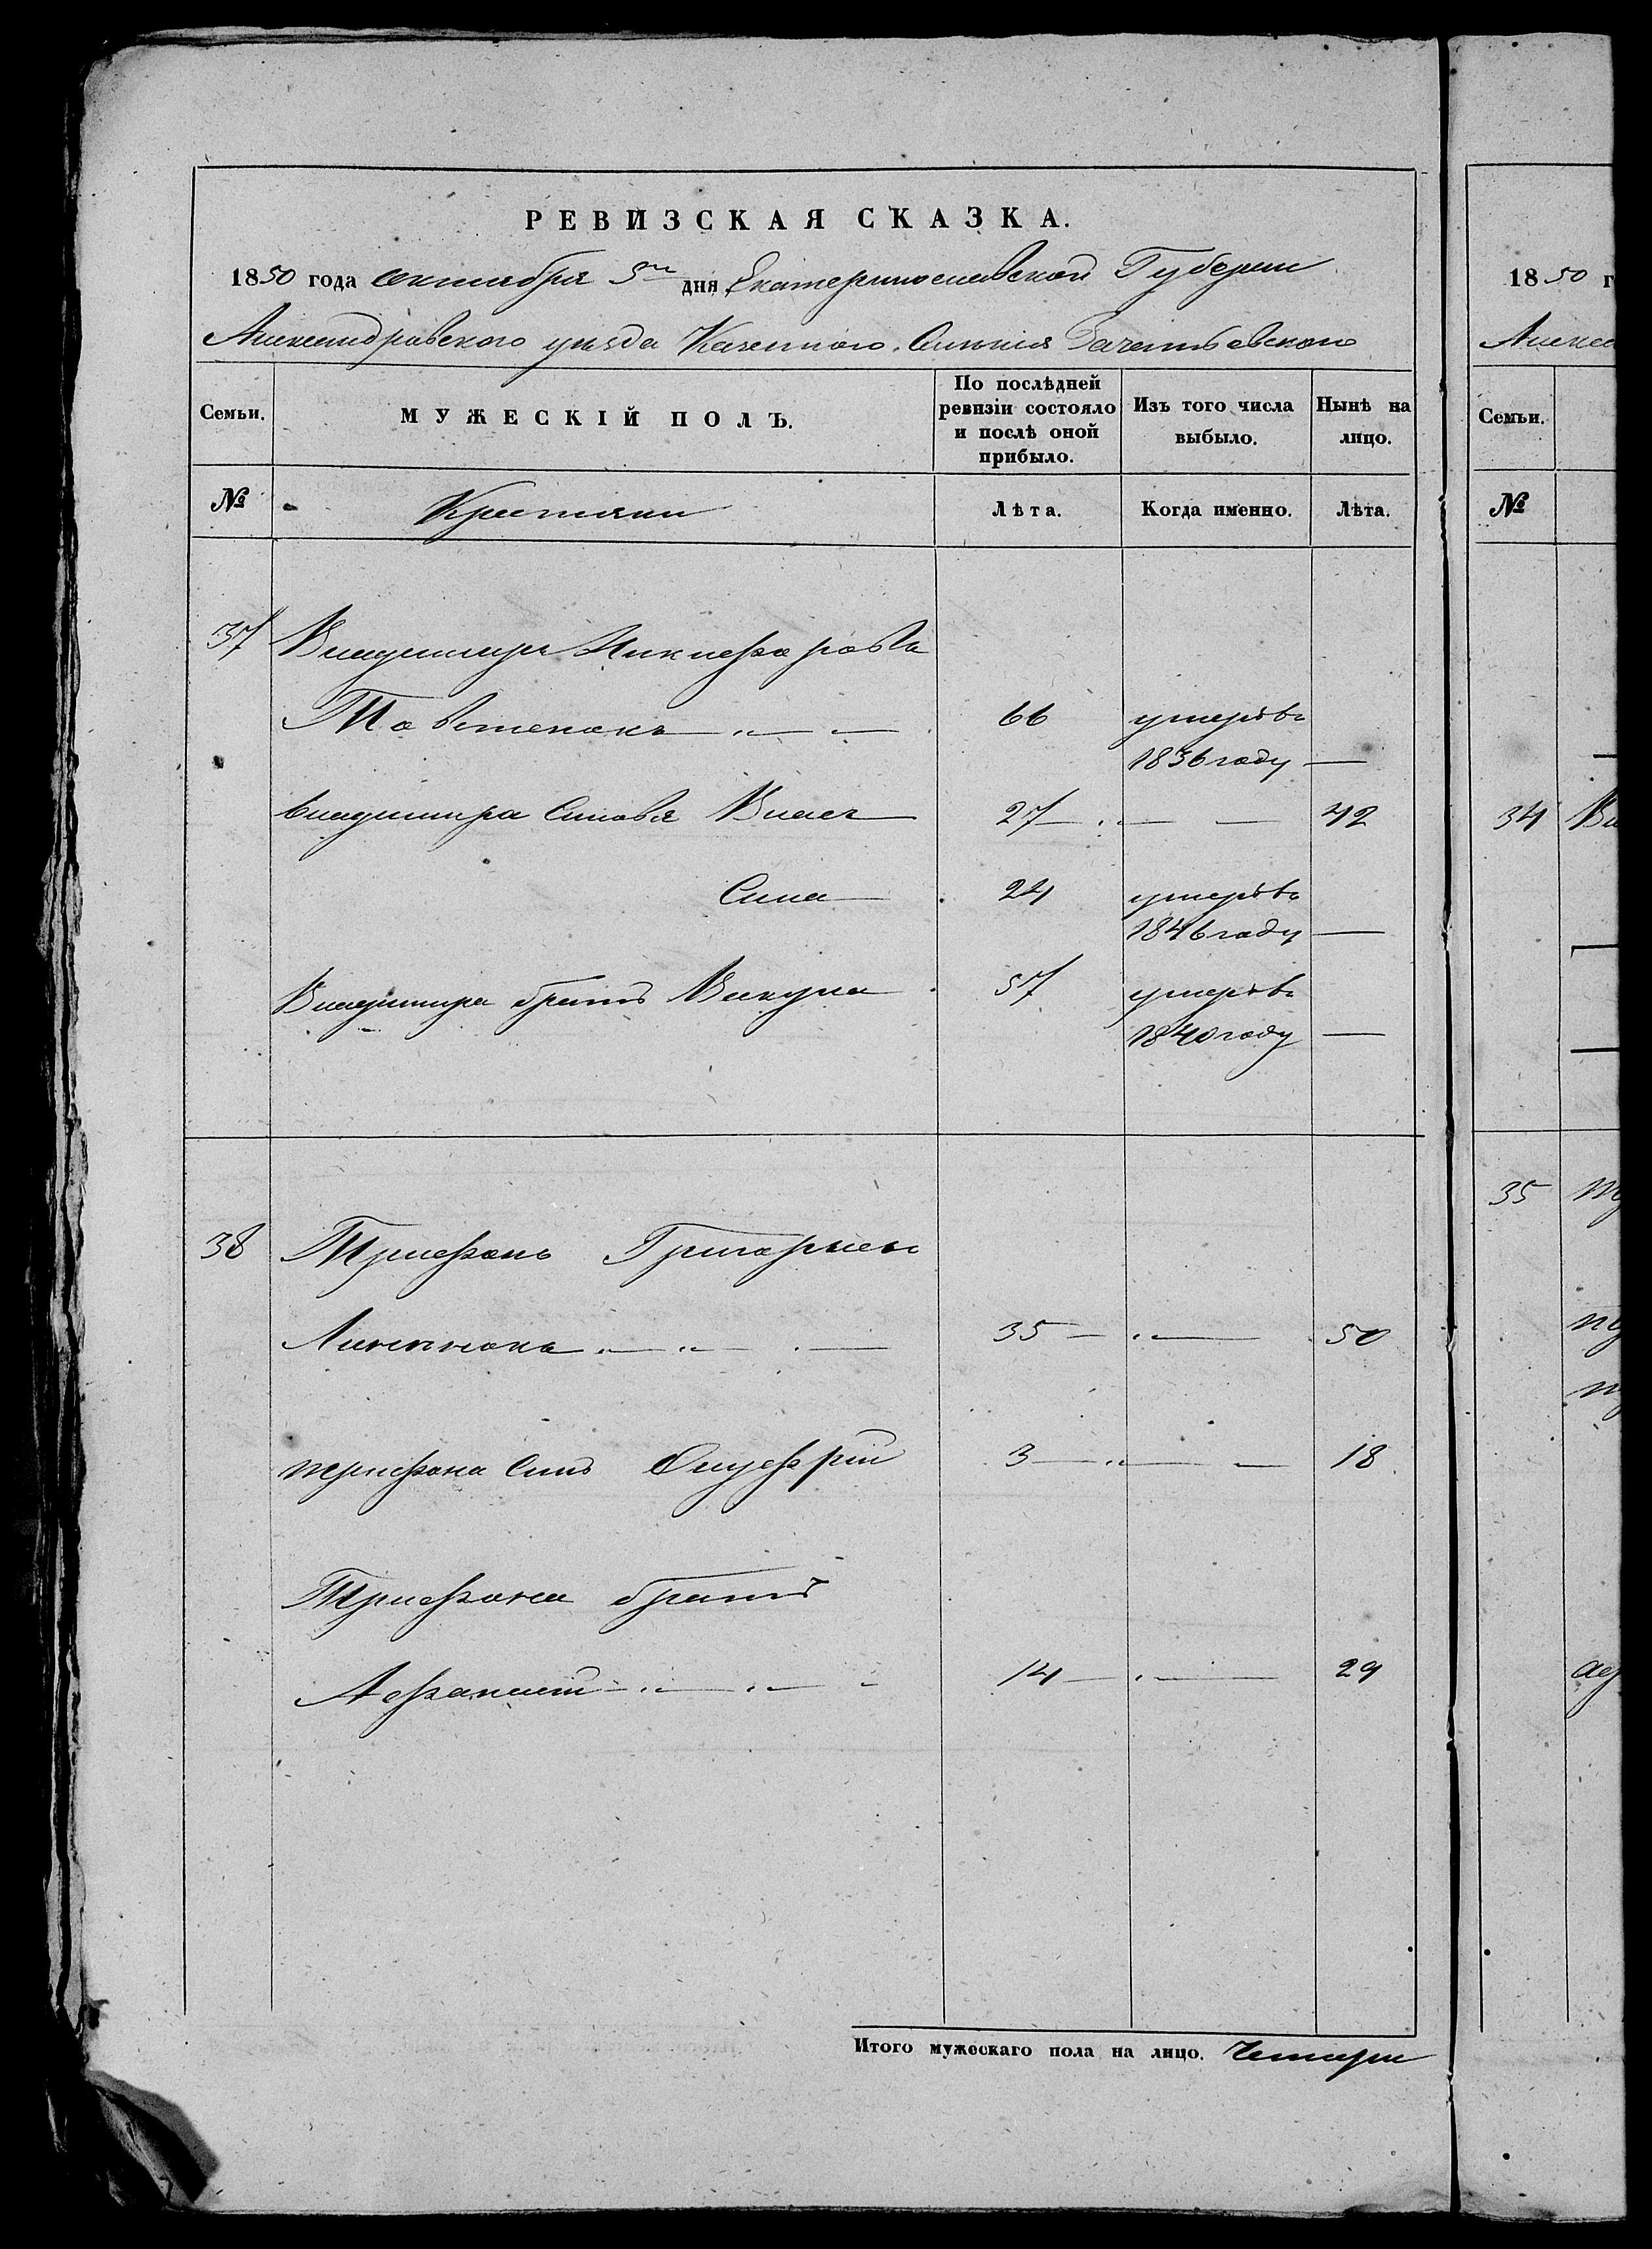 РЕВИЗСКАЯ СКАЗКА.
1850 года октября 5го дня Екатеринославской Губернии
Александровского уезда Казенного Селения
Семьи.
МУЖЕСКІЙ ПОЛЪ.
По послѣдней ревизіи состояло и послѣ оной прибыло.
Изъ того числа выбыло.
Нынѣ на лицо.
№
Крестяни
Лѣта.
Когда именно.
Лѣта.
37 Владимиръ Никифоровъ
Товстенокъ 66 умеръ въ
1836 году —
Владимира Синовя Влась 27 — — 42
Сила 24 умеръ въ
1846 году —
Владимира братъ Викула 57 умеръ въ
1840 году —
38 Трифонъ Григорьевъ
35 — 50
трифона Синъ Онуфрій 3 — 18
Трифона братъ
Афанасій 14 — 29
Итого мужескаго пола на лицо. Четири
1850 г
Алекса
Семьи.
№
34
35